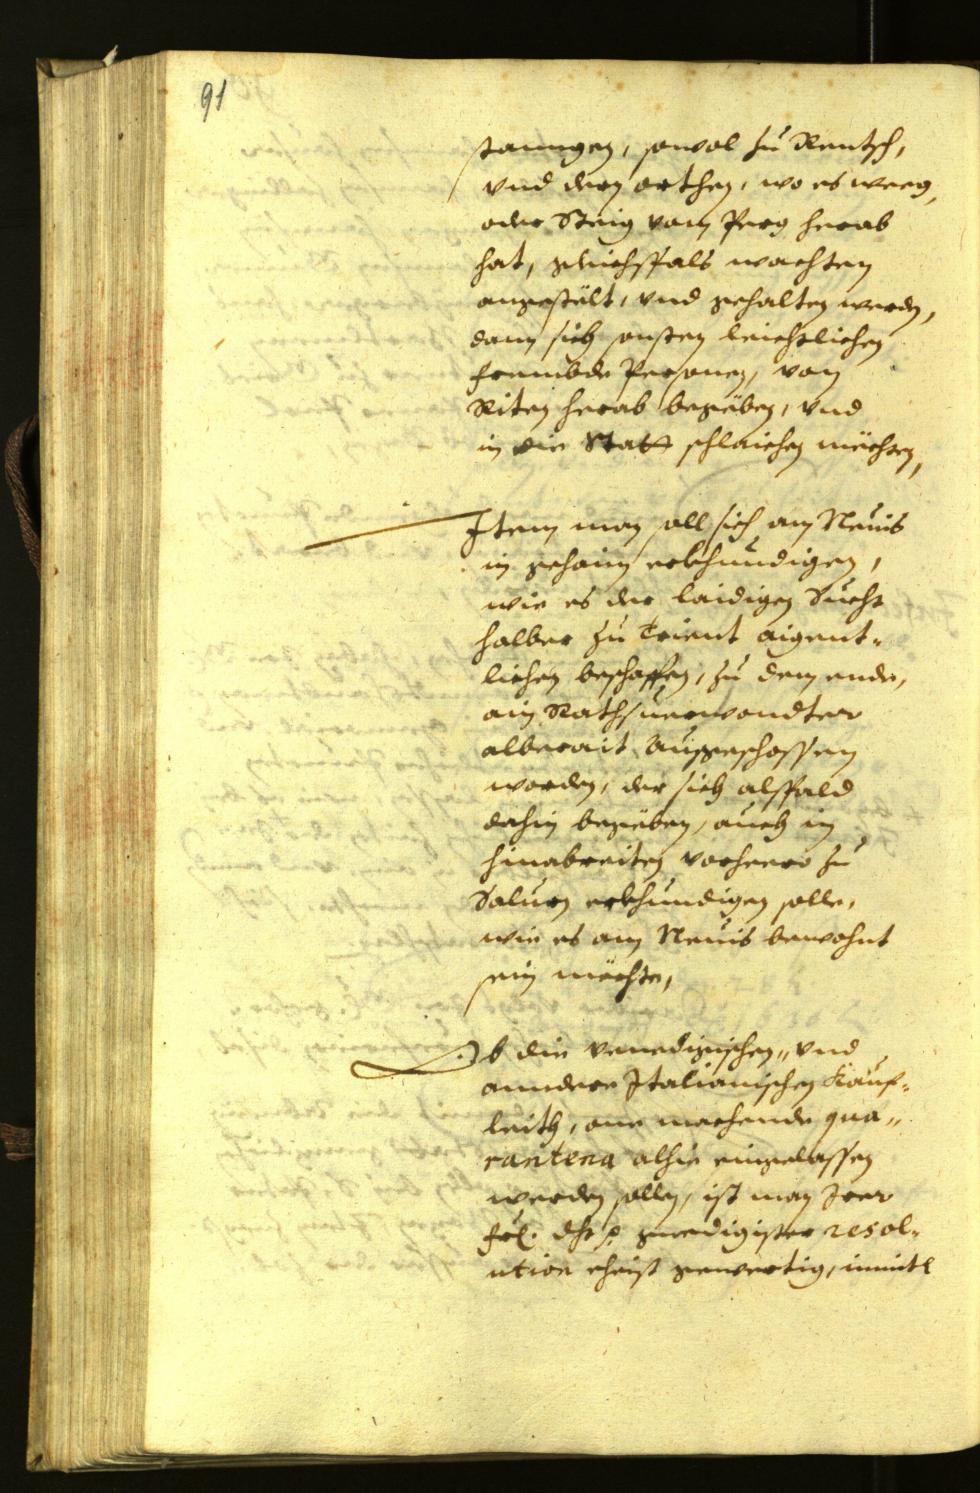 91
stanngen, sowol zu Rentsch,
vnd dern orthen, wo es weeg,
oder Steig vom Perg herab
hat, gleichsfals wachten
angestölt, vnd gehalten werden,
dann sich sonsten leichtlichen
frembde Personen, von
Riten herab begeben, vnd
in die Statt schlaichen möchten,
Item man soll sich am Neuis
in gehaim erkhundigen,
wie es der laidigen Sucht
halber zu Trient aigent-
lichen beschaffen, zu dem ende,
ain Rathsuerwondter
alberait ausgeschossen
worden, der sich alsfald
dahin begeben, auch in
hinabreiten vorheero zu
Salurn erkhundigen solle,
wie es am Neuis bewohnt
sein möchte,
Ob die venedigischen, vnd
anndere Italianischen Kauf-
leith, one machende qua-
rantena alhie eingelassen
werden sollen, ist man Irer
frl. dht. genedigister resol-
ution ehist gewertig, inmitl